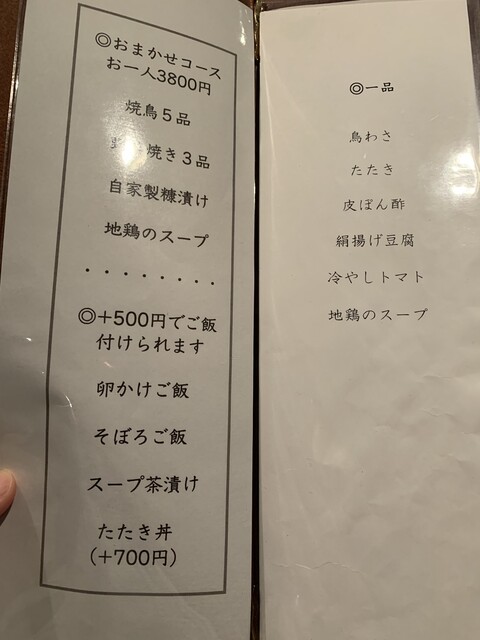 ◎おまかせコース
お一人3800円
焼鳥5品
焼き3品
自家製糠漬け
地鶏のスープ
・・・・・・・・
◎+500円でご飯
付けられます
卵かけご飯
そぼろご飯
スープ茶漬け
たたき丼
(+700円)
◎一品
鳥わさ
たたき
皮ぽん酢
絹揚げ豆腐
冷やしトマト
地鶏のスープ